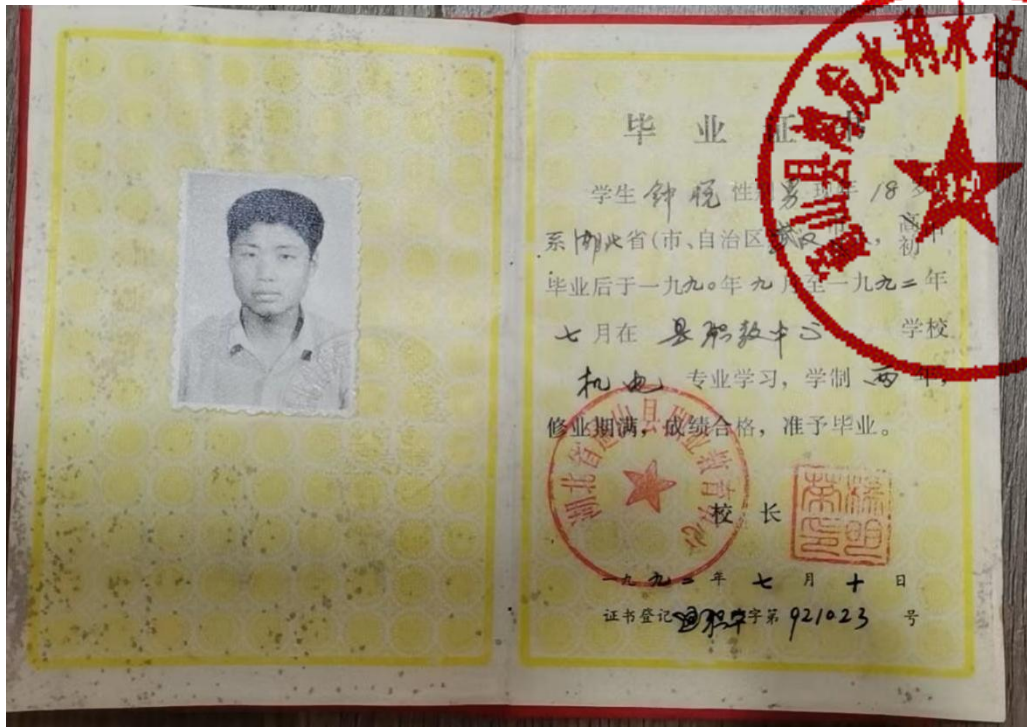 毕业证书
学生 钟 性别男现年 18 岁
系湖北省(市、自治区武汉市 ,高初中
毕业后于一九九〇年九月至一九九二年
七月在 县职教中心 学校
机电 专业学习,学制 两 年,
修业期满,成绩合格,准予毕业。
校 长
一九九二年 七 月 十 日
证书登记通职中字第 921023 号
湖北省通山县职业教育中心
山县 发水利水